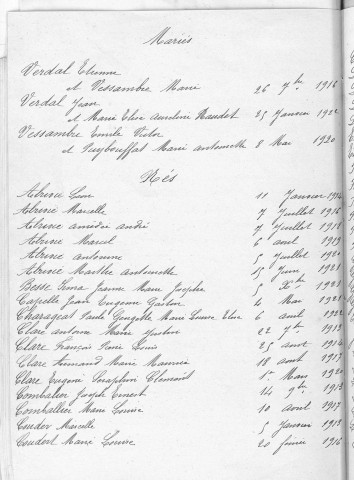 Mariés
Verdal Etienne
et Vessambre Marie 26 7bre 1916
Verdal Jean
et Marie Elise Naudet 25 Janvier 1922
Vessambre Emile Victor
et Puybouffat Marie antoinette 8 Mai 1920
Nés
11 Janvier 1914
Marcelle 7 Juillet 1916
amédée andré 7 Juillet 1918
Marcel 6 avril 1919
antonine 5 Juillet 1920
Marthe antoinette 15 Juin 1921
Besse Irma Jeanne Marie Josèphe 5 Xbre 1921
Capelle Jean Eugène Gaston 4 Mai 1921
Marie Louise Elise 6 avril 1922
Clare antoine Marie 22 7bre 1913
Clare François Louis 25 avril 1914
Clare Fernand Marie 18 aout 1917
Clare Eugène Séraphin Clément 1er Mars 1920
Combalier Joseph Ernest 14 9bre 1913
Comballier Marie Louise 10 avril 1917
Couder Marcelle 5 Janvier 1913
Coudert Marie Louise 20 février 1916